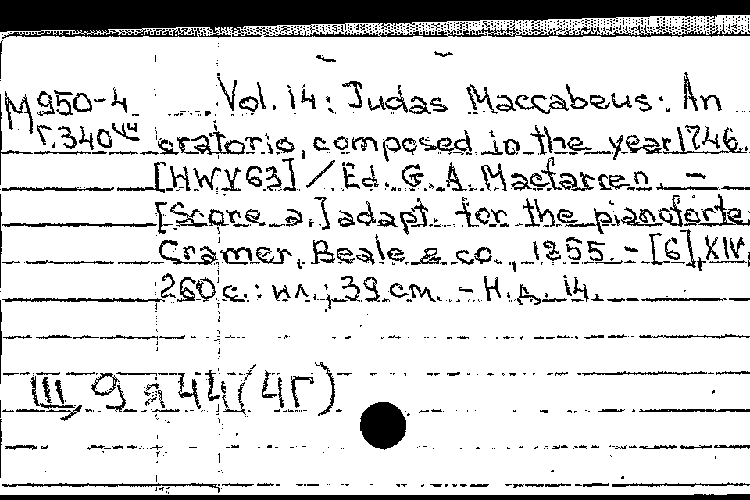 М 950-4 Vol. 14: Judas Maccabeus. An
Г.340 oratorio, composed in the year 1746.
[HWV63] / Ed. G. A. Macfarren. -
[Score a.] adapt. for the pianoforte.
Cramer, Beale & co., 1855. - [6], XIV,
260 с.: ил.; 39 см. - Н.д. 14.
III, 9 я 44 (4Г)